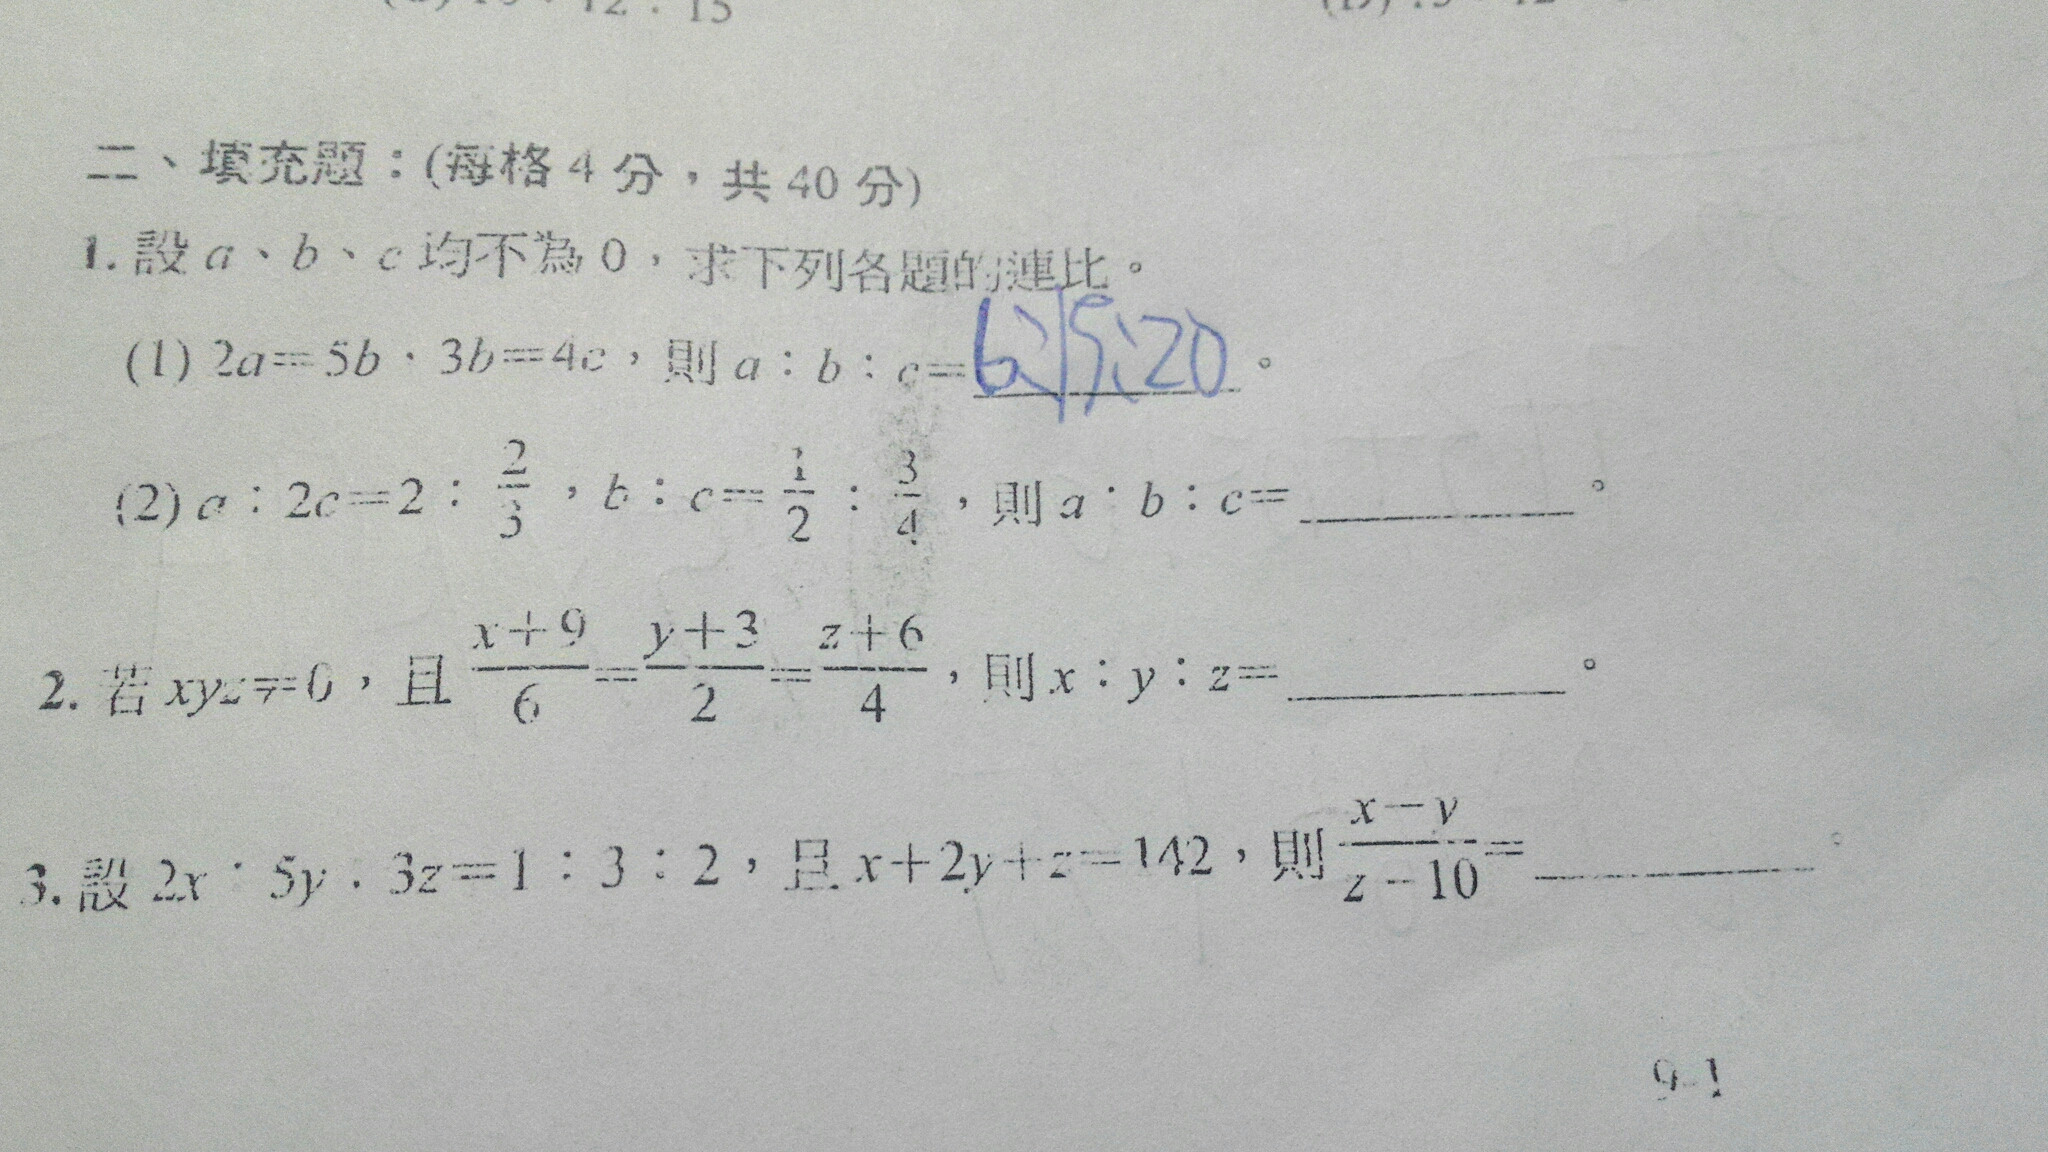 12 : 15
二、填充題：(每格 4 分，共 40 分)
1. 設 a、b、c 均不為 0，求下列各題的連比。
(1) 2a=5b，3b=4c，則 a：b：c=6:15:20。
(2) a：2c=2：2/3，b：c=1/2：3/4，則 a：b：c=＿＿＿＿。
2. 若 xyz≠0，且 (x+9)/6=(y+3)/2=(z+6)/4，則 x：y：z=＿＿＿＿。
3. 設 2x：5y：3z=1：3：2，且 x+2y+z=142，則 (x-y)/(z-10)=＿＿＿＿。
9-1